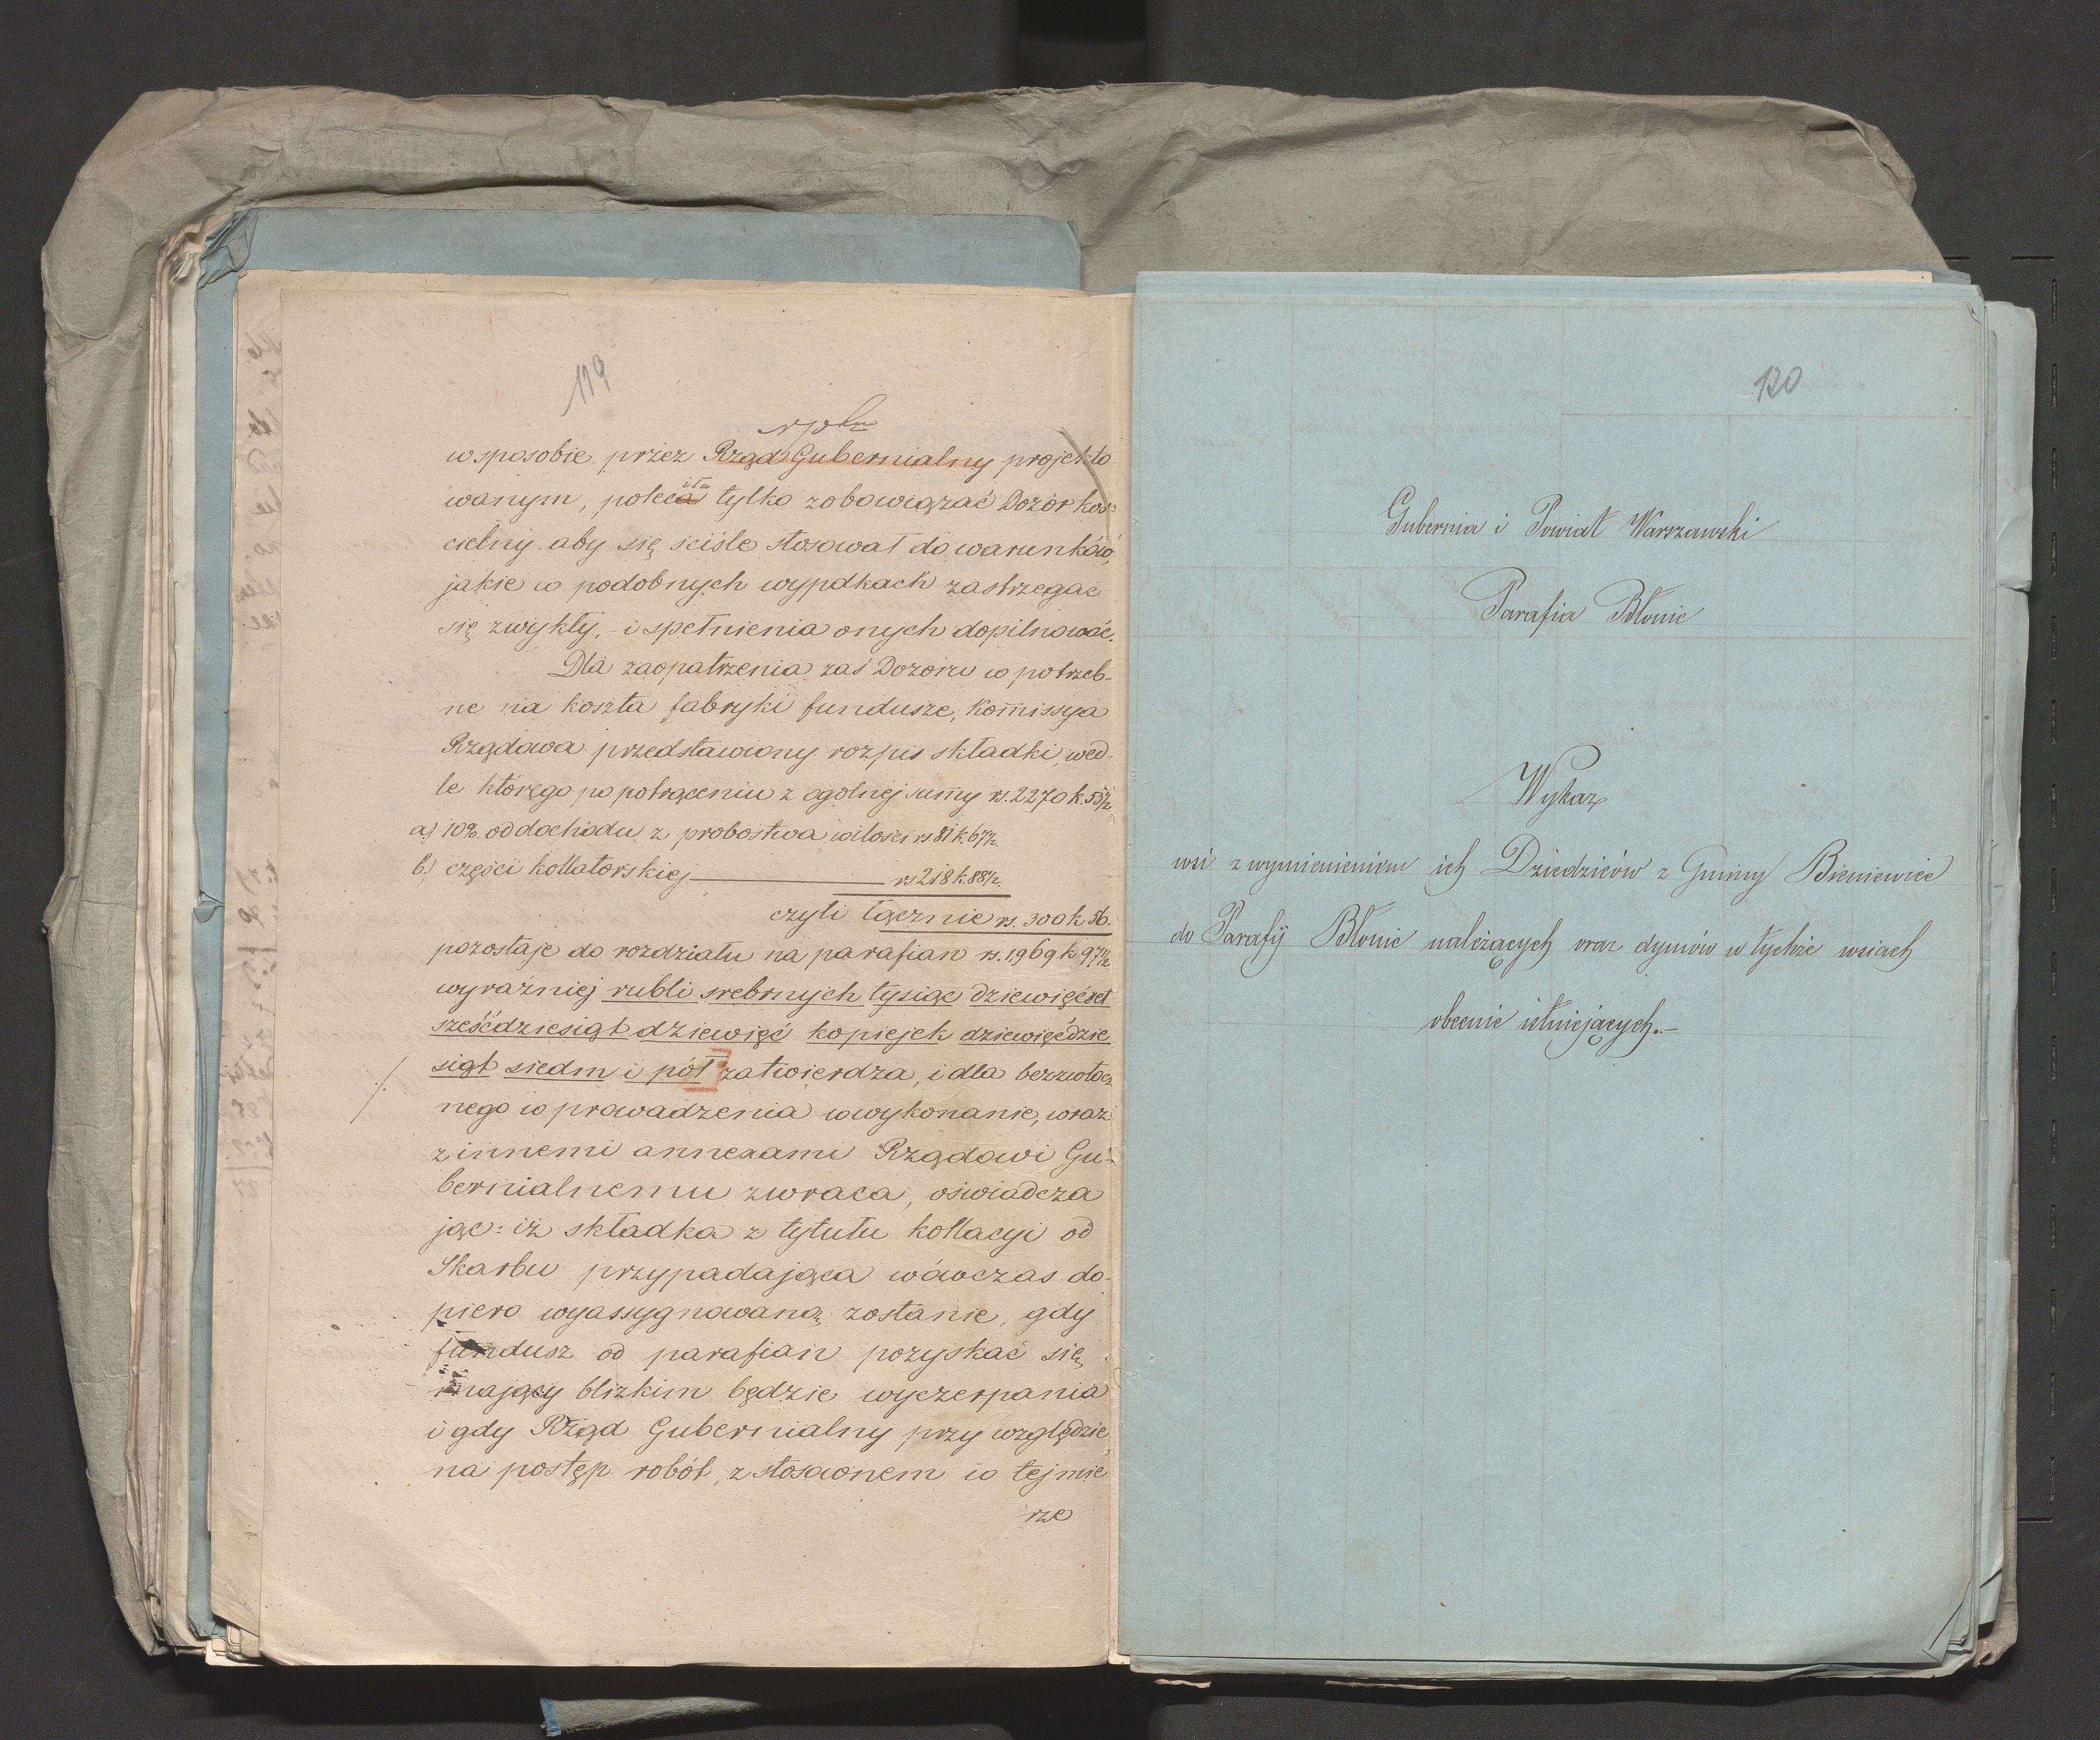 119
w sposobie przez Rząd Gubernialny projekto
wanym, poleca iła tylko zobowiązać Dozór koś=
cielny aby się ściśle stosował do warunków,
jakie w podobnych wypdkach zastrzegać
się zwykły, - i spełnienia onych dopilnować.
Dla zaopatrzenia zaś Dozoru w potrzeb-
ne na koszta fabryki fundusze, Kommissya
Rządowa przedstawiony rozpis składki, wed-
le którego po potrąceniu z ogólnej summy rs. 2270 k. 53½
a) 10% od dochodu z probostwa wilości rs. 81 k. 67½.
b.) części kollatorskiej rs 218 k. 88½.
czyli łącznie rs. 300 k 56.
pozostaje do rozdziału na parafian rs. 1,969 k 97½
wyraźniej rubli srebrnych tysiąc dziewięćset
sześćdziesiąt dziewięć kopiejek dziewięćdzie
siąt siedm i pół zatwierdza, i dla bezzwłocz
nego wprowadzenia w wykonanie, wraz
z innemi annexami Rządowi Gu-
bernialnemu zwraca, oświadcza
jąc: iż składka z tytułu kollacyi od
Skarbu przypadająca wówczas do-
piero wyassygnowaną zostanie, gdy
fundusz od parafian pozyskać się
mający blizkim będzie wyczerpania
i gdy Rząd Gubernialny przy względzie
na postęp robót, z stosownem w tej mie
rze
120
Gubernia i Powiat Warszawski
Parafia Błonie
Wykaz
wsi z wymienieniem ich Dziedziców z Gminy Bieniewice
do Parafij Błonie należących oraz dymów w tychże wsiach
obecnie istniejących.-